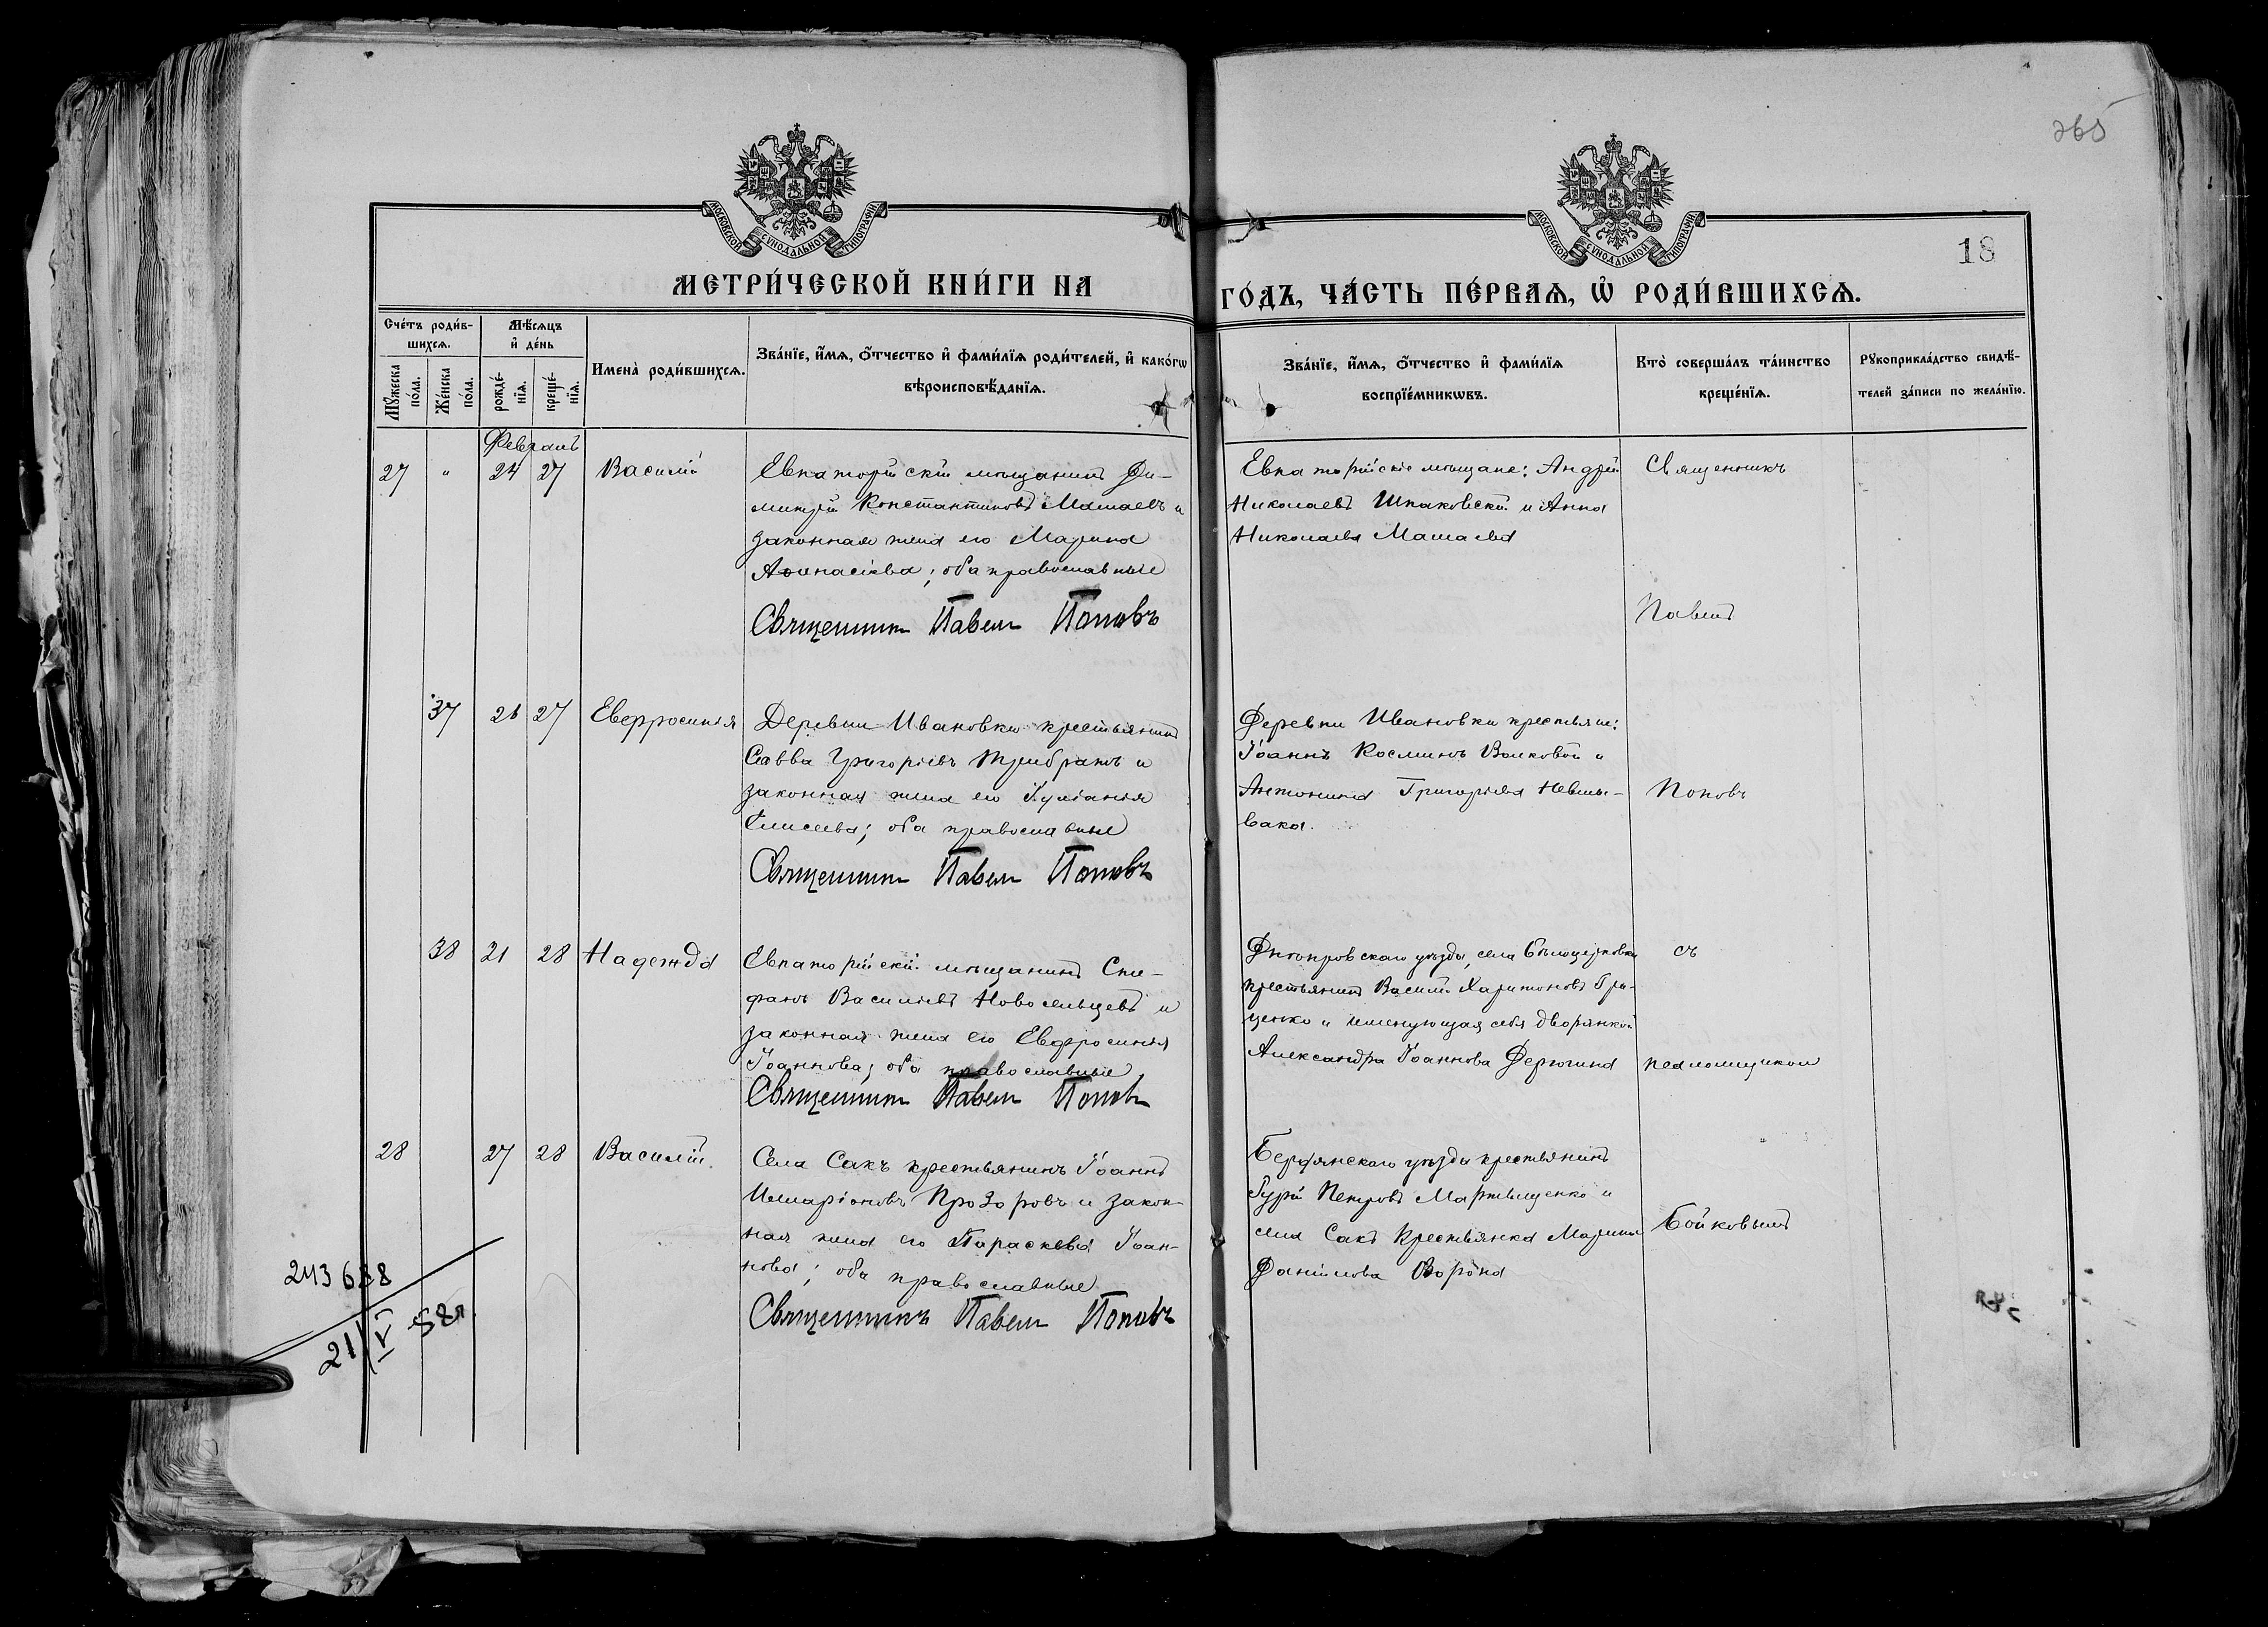 265
МОСКОВСКОЙ СУНОДАЛЬНОЙ ТИПОГРАФІИ
МОСКОВСКОЙ СУНОДАЛЬНОЙ ТИПОГРАФІИ
18
МЕТРИ́ЧЕСКОЙ КНИ́ГИ НА
ГО́ДЪ, ЧА́СТЬ ПЕ́РВАѦ, Ѡ҆ РОДИ́ВШИХСѦ.
Счéтъ роди́в-
шихсѧ.
Мѣ́сѧцъ
и҆ де́нь
Мꙋ́жеска
по́ла.
Же́нска
по́ла.
рожде́-
нїѧ.
креще́-
нїѧ.
Имена̀ роди́вшихсѧ.
Зва́нїе, и҆́мѧ, ѻ҆́тчество и҆ фами́лїѧ роди́телей, и҆ како́гѡ
вѣроисповѣ́данїѧ.
Зва́нїе, и҆́мѧ, ѻ҆́тчество и҆ фами́лїѧ
воспрїе́мникѡвъ.
Кто̀ соверша́лъ та́инство
креще́нїѧ.
Рꙋкоприкла́дство свидѣ́-
телей за́писи по жела́нїю.
Февраль
27 " 24 27 Василій
Евпаторійскій мѣщанинъ Ди-
митрій Константиновъ Мамаевъ и
законная жена его Марина
Аѳанасіева; оба православные
Священникъ Павелъ Поповъ
Евпаторійскіе мѣщане: Андрей
Николаевъ Шпаковскій и Анна
Николаева Мамаева
Священникъ
Павелъ
37 26 27 Евфросинія
Деревни Ивановки крестьянинъ
Савва Григоріевъ и
законная жена его Іуліанія
Елисеева; оба православные
Священникъ Павелъ Поповъ
Деревни Ивановки крестьяне:
Іоаннъ Косминъ Волковой и
Антонина Григоріева
Поповъ
38 21 28 Надежда
Евпаторійскій мѣщанинъ Сте-
фанъ Васильевъ Новосельцевъ и
законная жена его Евфросинія
Іоаннова; оба православные
Священникъ Павелъ Поповъ
Днѣпровскаго уѣзда, села Бѣлоцерковки
крестьянинъ Василій Харитоновъ Гри-
ценко и именующая себя дворянкой
Александра Іоаннова Дерюгина
съ
псаломщикомъ
28 27 28 Василій.
Села Сакъ крестьянинъ Іоаннъ
Илларіоновъ Прозоровъ и закон-
ная жена его Параскева Іоан-
нова; оба православные
Священникъ Павелъ Поповъ
Бердянскаго уѣзда крестьянинъ
Гурій Петровъ Мартыщенко и
села Сакъ крестьянка Марина
Даніилова Ворона
Бойковымъ
243688
21/V 58г.